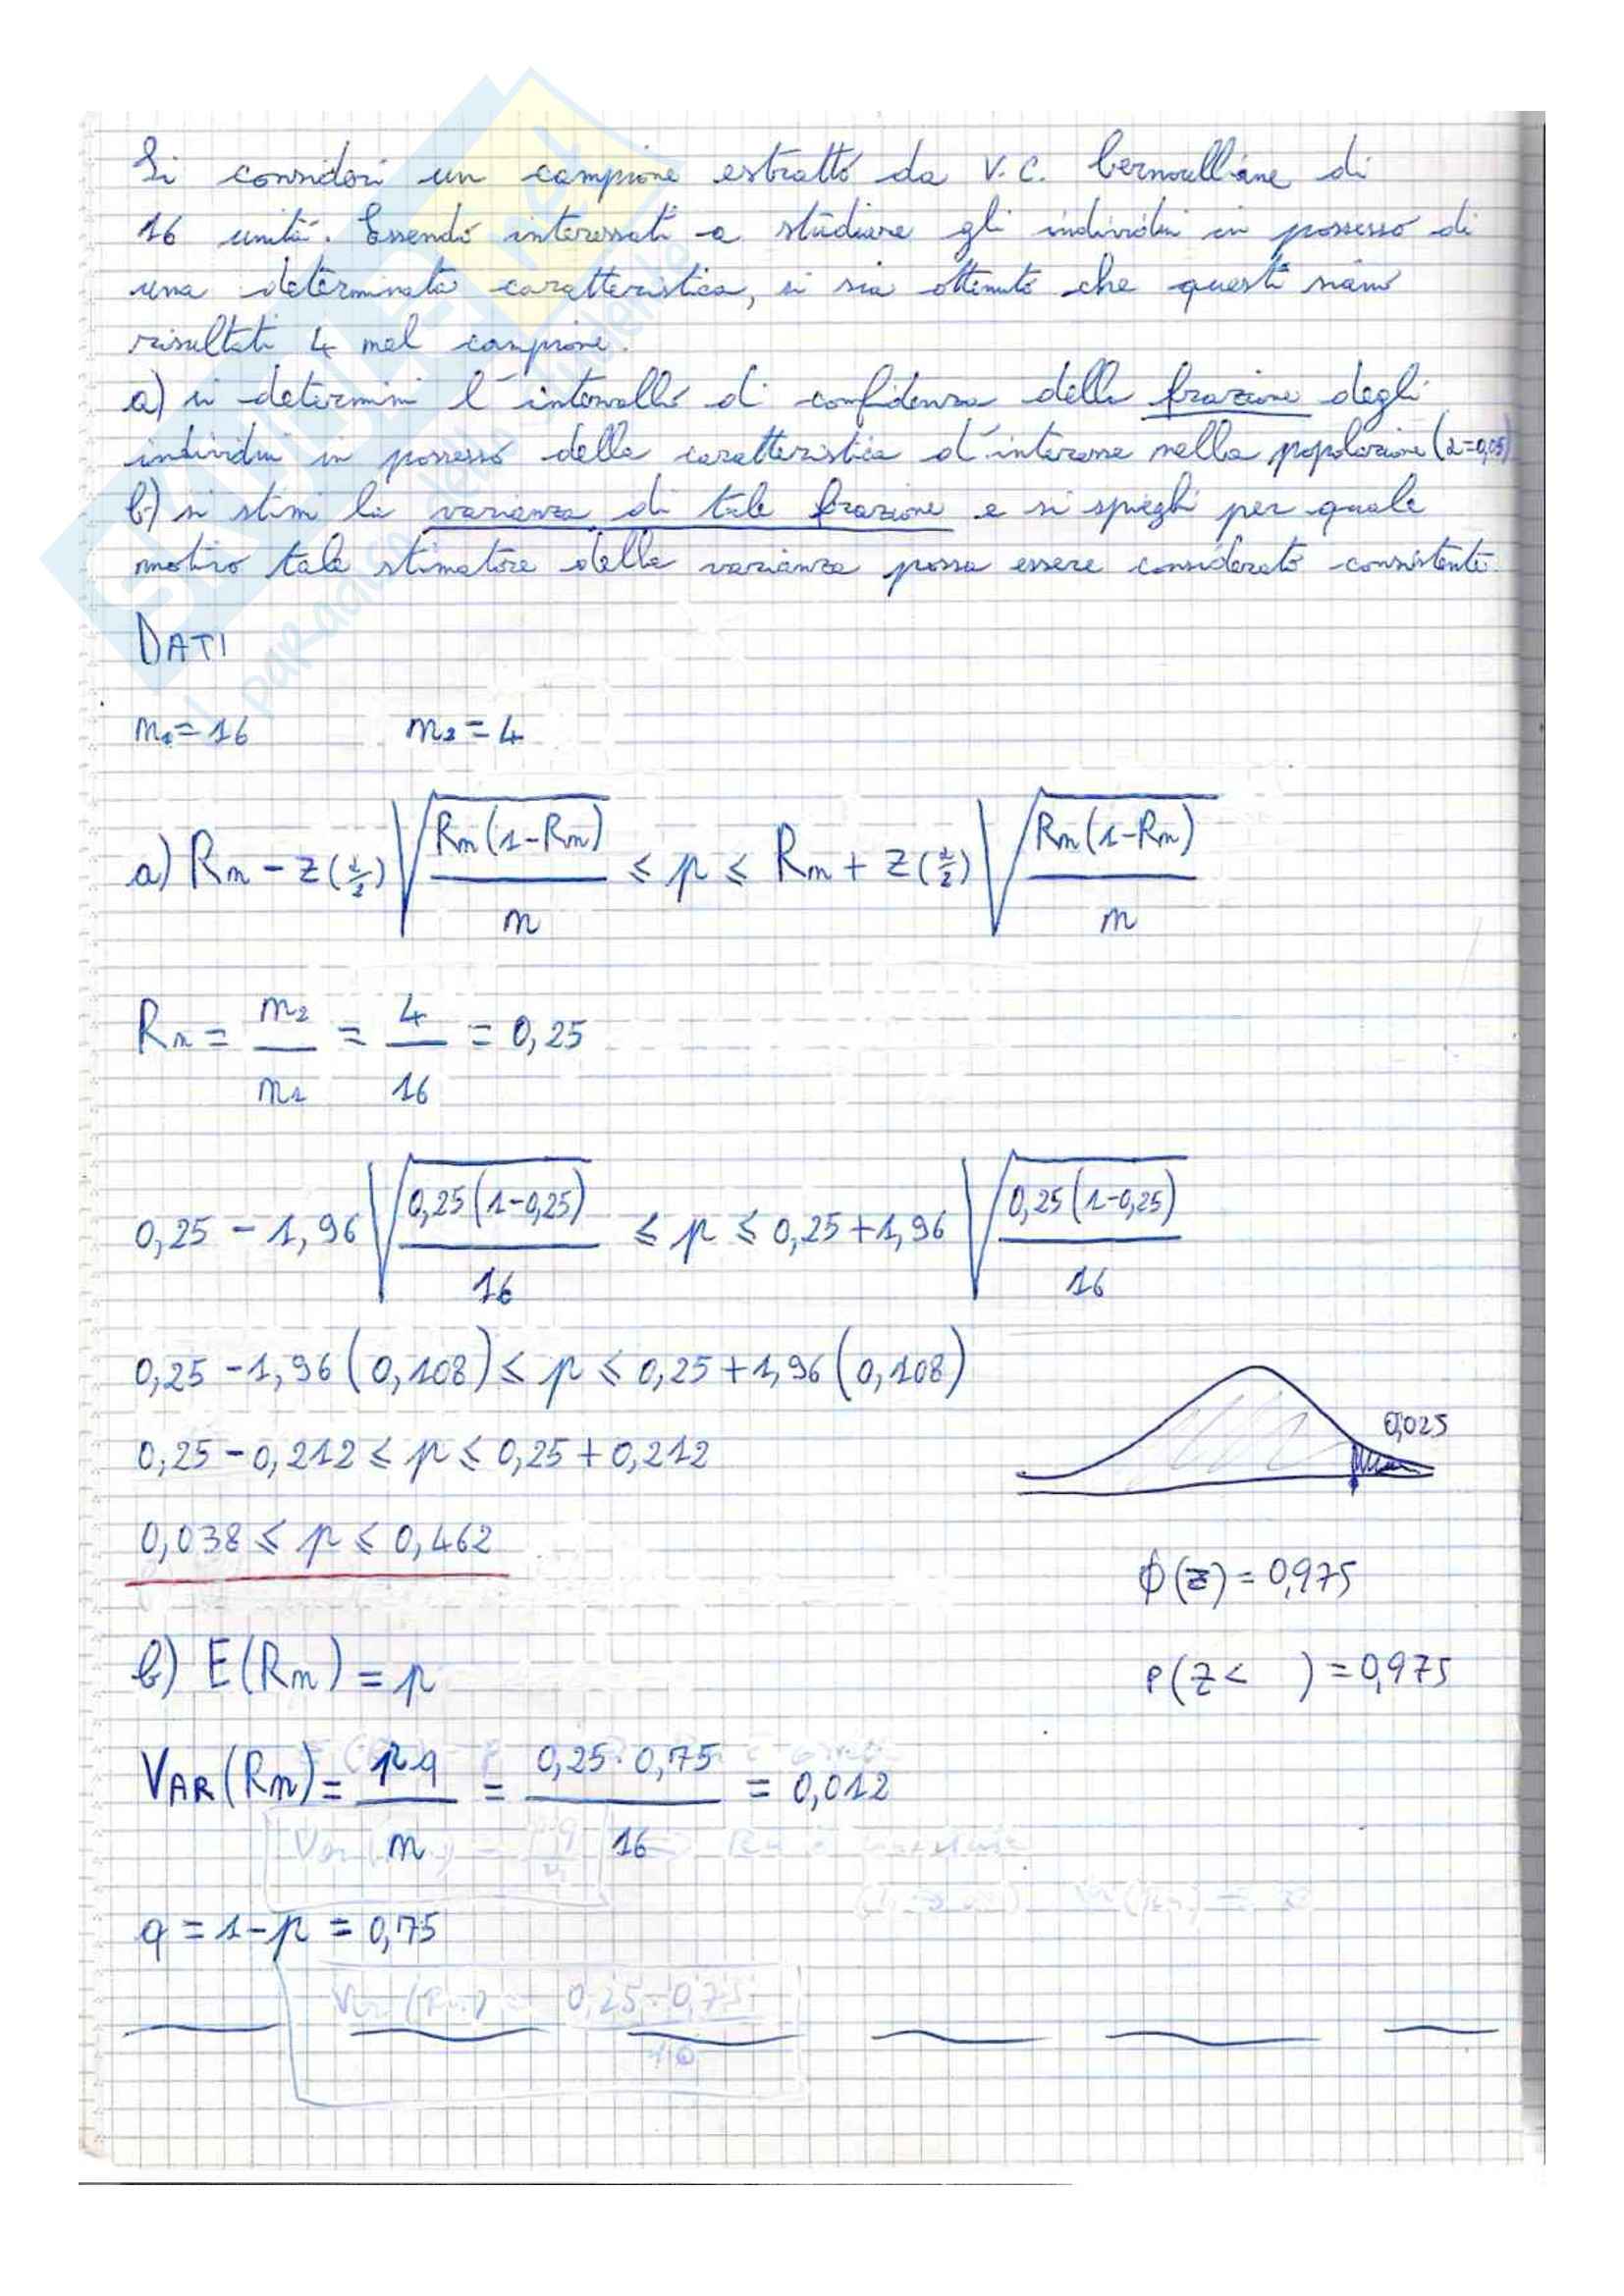 Si consideri un campione estratto da V.C. bernoulliane di
16 unità. Essendo interessati a studiare gli individui in possesso di
una determinata caratteristica, si sia ottenuto che questi siano
risultati 4 nel campione.
a) si determini l'intervallo di confidenza della frazione degli
individui in possesso della caratteristica d'interesse nella popolazione (α=0,05)
b) si stimi la varianza di tale frazione e si spieghi per quale
motivo tale stimatore della varianza possa essere considerato consistente.
DATI
n₁=16 n₂=4
a) Rn - z(α/2) √(Rn(1-Rn)/n) ≤ p ≤ Rn + z(α/2) √(Rn(1-Rn)/n)
Rn = n₂/n₁ = 4/16 = 0,25
0,25 - 1,96 √(0,25(1-0,25)/16) ≤ p ≤ 0,25+1,96 √(0,25(1-0,25)/16)
0,25 -1,96 (0,108) ≤ p ≤ 0,25+1,96 (0,108)
0,025
0,25 - 0,212 ≤ p ≤ 0,25 + 0,212
0,038 ≤ p ≤ 0,462
Φ(z) = 0,975
b) E(Rn) = p
P(Z< ) = 0,975
VAR(Rn) = pq/n = 0,25·0,75/16 = 0,012
q = 1-p = 0,75
SKUOLA.net
il paradiso dello studente